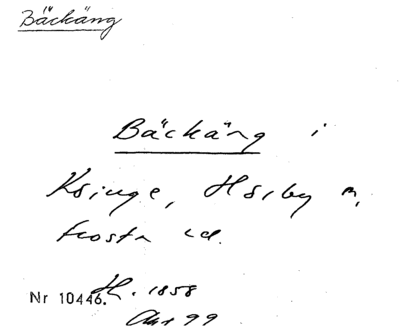 Bäckäng
Bäckäng i
Ksinge, Hörby n,
frosta hd.
Nr 10446. H. 1858
Akt 99